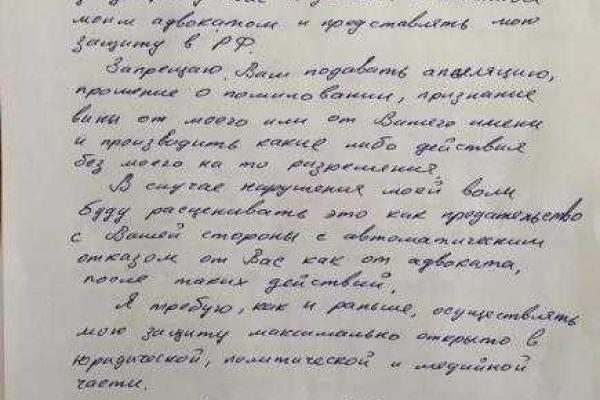 моим адвокатом и представлять мою
защиту в РФ.
Запрещаю Вам подавать апелляцию,
прошение о помиловании, признание
вины от моего или от Вашего имени
и производить какие либо действия
без моего на то разрешения.
В случае нарушения моей воли
буду расценивать это как предательство
с Вашей стороны с автоматическим
отказом от Вас как от адвоката,
после таких действий.
Я требую, как и раньше, осуществлять
мою защиту максимально открыто в
юридической, политической и медийной
части.